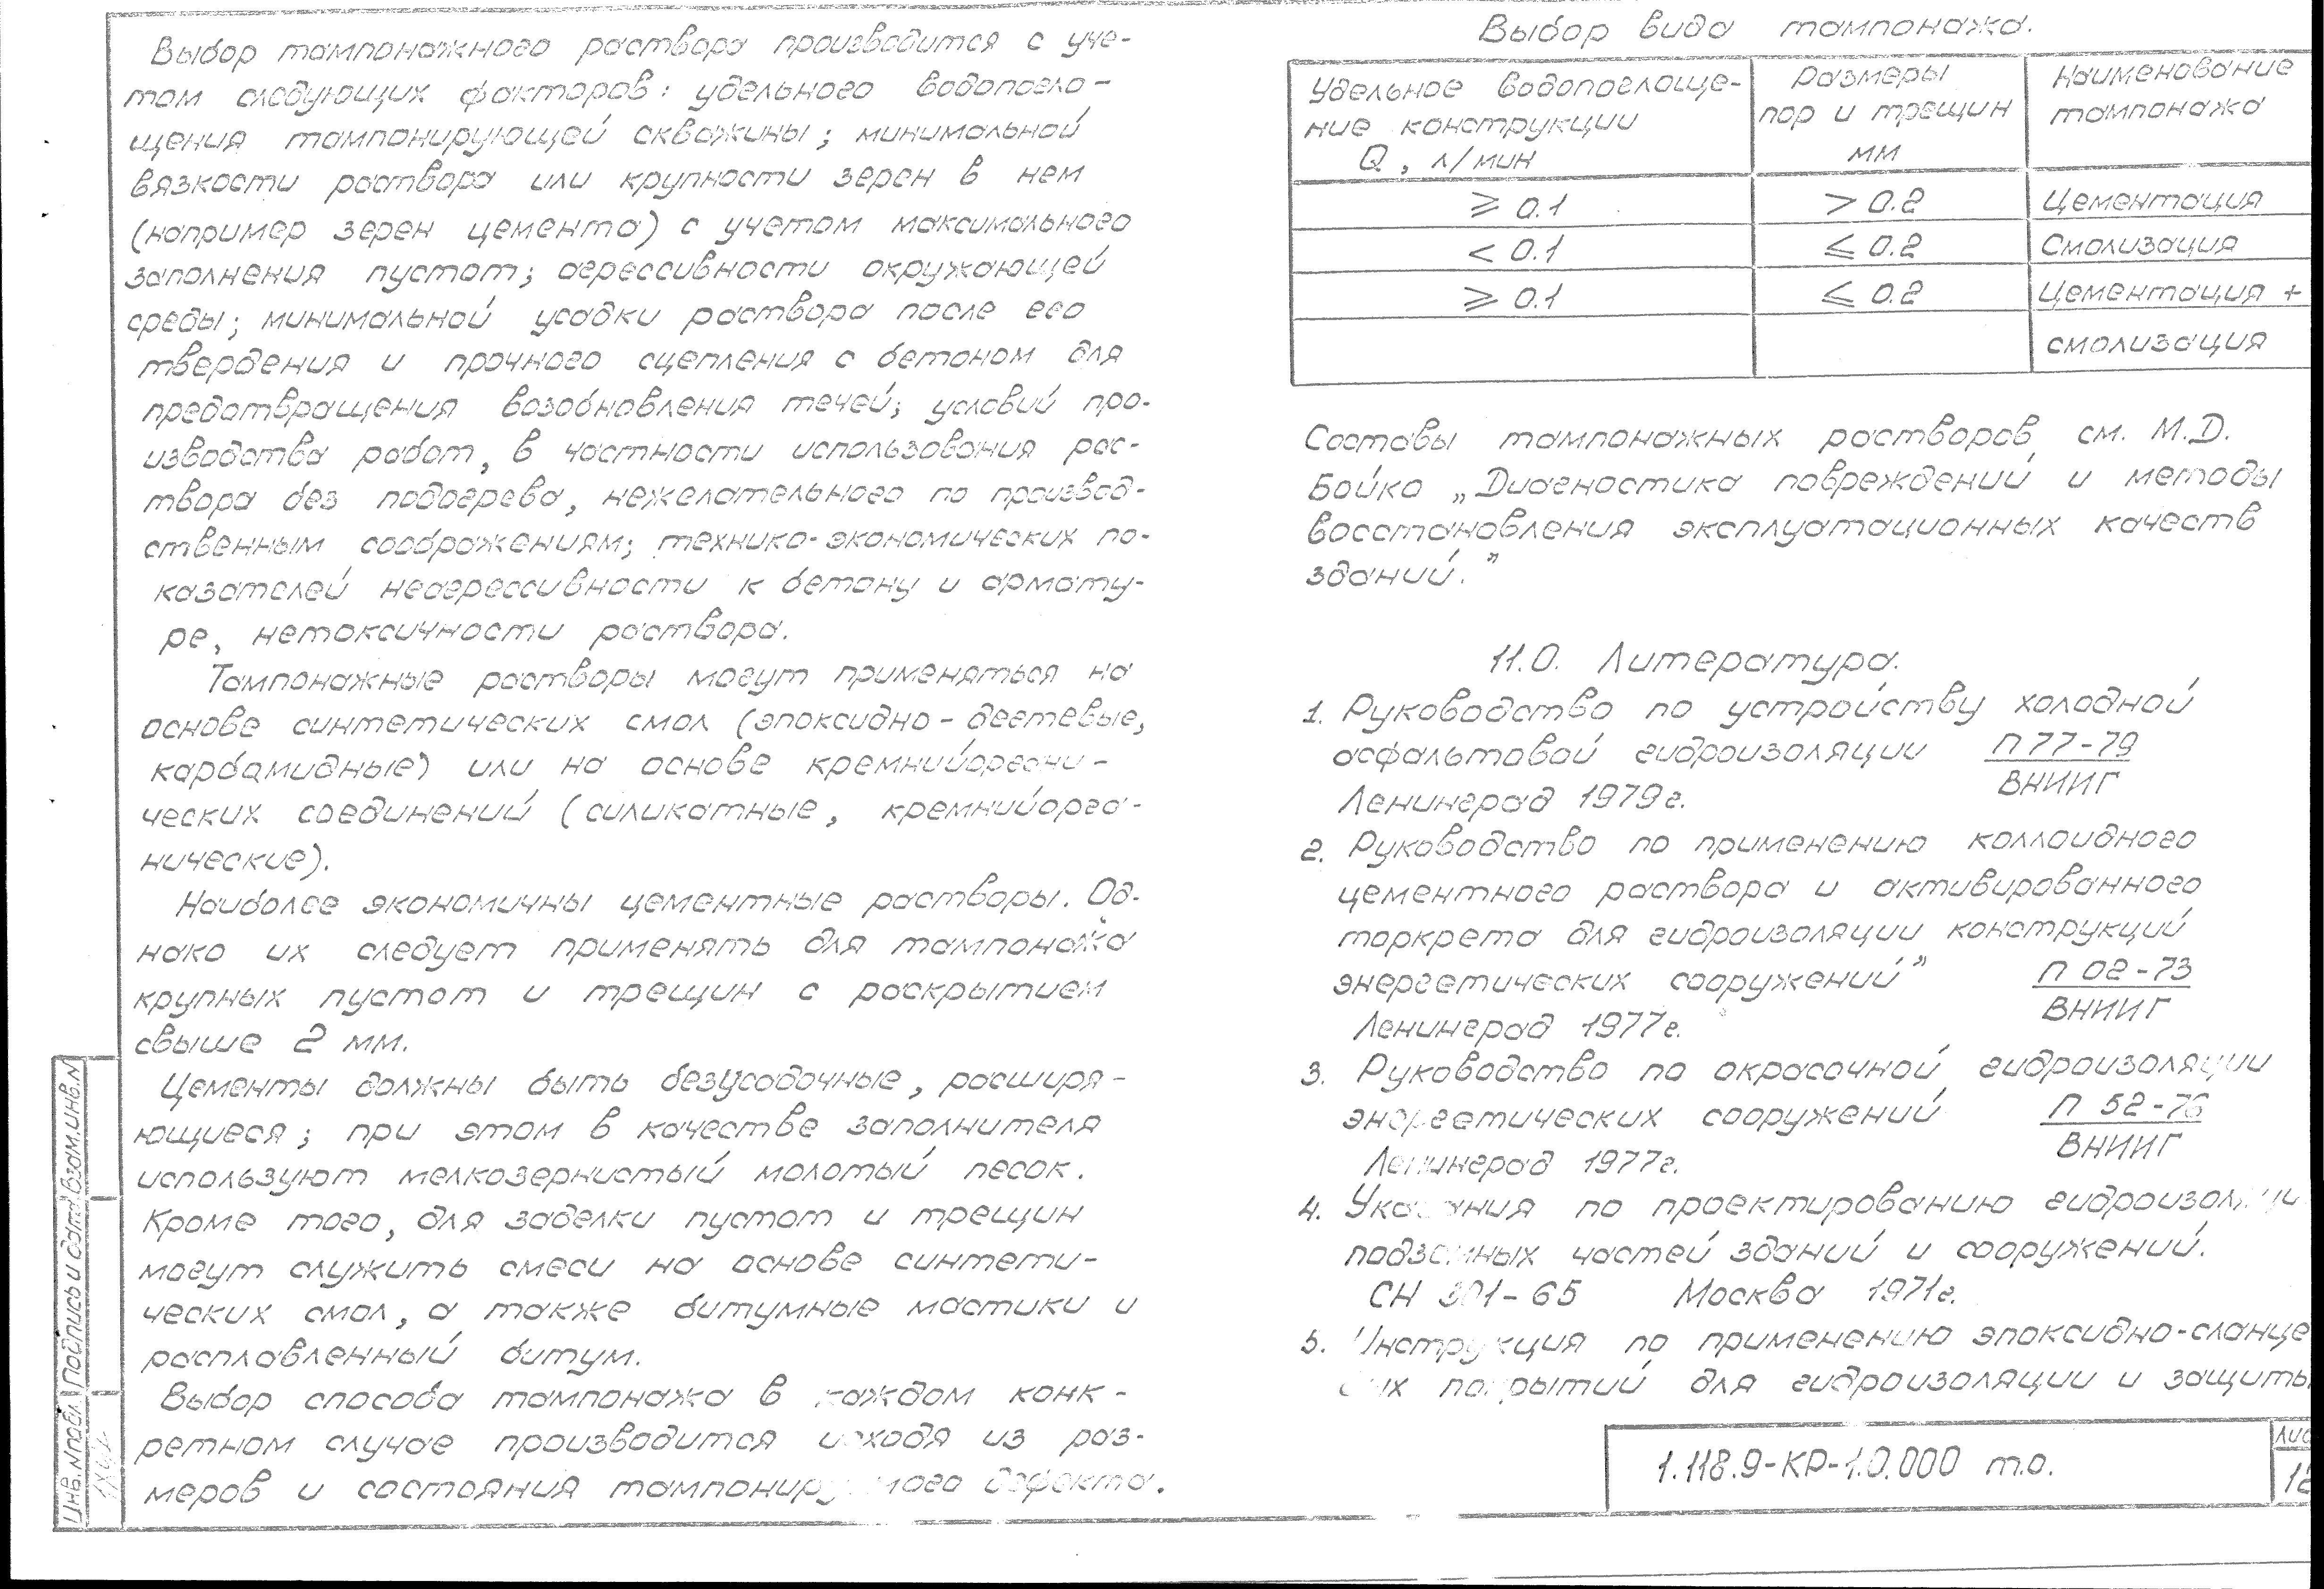 Выбор тампонажного раствора производится с уче-
том следующих факторов: удельного водопогло-
щения тампонирующей скважины; минимальной
вязкости раствора или крупности зерен в нем
(например зерен цемента) с учетом максимального
заполнения пустот; агрессивности окружающей
среды; минимальной усадки раствора после его
твердения и прочного сцепления с бетоном для
предотвращения возобновления течей; условий про-
изводства работ, в частности использования рас-
твора без подогрева, нежелательного по производ-
ственным соображениям; технико-экономических по-
казателей неагрессивности к бетону и армату-
ре, нетоксичности раствора.
Тампонажные растворы могут применяться на
основе синтетических смол (эпоксидно-дегтевые,
карбамидные) или на основе кремнийоргани-
ческих соединений (силикатные, кремнийорга-
нические).
Наиболее экономичны цементные растворы. Од-
нако их следует применять для тампонажа
крупных пустот и трещин с раскрытием
свыше 2 мм.
Цементы должны быть безусадочные, расширя-
ющиеся; при этом в качестве заполнителя
используют мелкозернистый молотый песок.
Кроме того, для заделки пустот и трещин
могут служить смеси на основе синтети-
ческих смол, а также битумные мастики и
расплавленный битум.
Выбор способа тампонажа в каждом конк-
ретном случае производится исходя из раз-
меров и состояния тампонируемого дефекта.
Выбор вида тампонажа.
Удельное водопоглоще-
ние конструкции
Q, л/мин
Размеры
пор и трещин
мм
Наименование
тампонажа
⩾ 0.1 > 0.2 Цементация
< 0.1 ⩽ 0.2 Смолизация
⩾ 0.1 ⩽ 0.2 Цементация +
смолизация
Составы тампонажных растворов см. М.Д.
Бойко „Диагностика повреждений и методы
восстановления эксплуатационных качеств
зданий."
11.0. Литература.
1. Руководство по устройству холодной
асфальтовой гидроизоляции П 77-79
ВНИИГ
Ленинград 1979г.
2. Руководство по применению коллоидного
цементного раствора и активированного
торкрета для гидроизоляции конструкций
энергетических сооружений" П 02-73
ВНИИГ
Ленинград 1977г.
3. Руководство по окрасочной гидроизоляции
энергетических сооружений П 52-76
ВНИИГ
Ленинград 1977г.
4. Указания по проектированию гидроизоляции
подземных частей зданий и сооружений.
СН 301-65 Москва 1971г.
5. Инструкция по применению эпоксидно-сланце
вых покрытий для гидроизоляции и защиты
1.118.9-КР-1.0.000 т.о.
Лис
Инв.Nподл. Подпись и дата Взам.инв.N